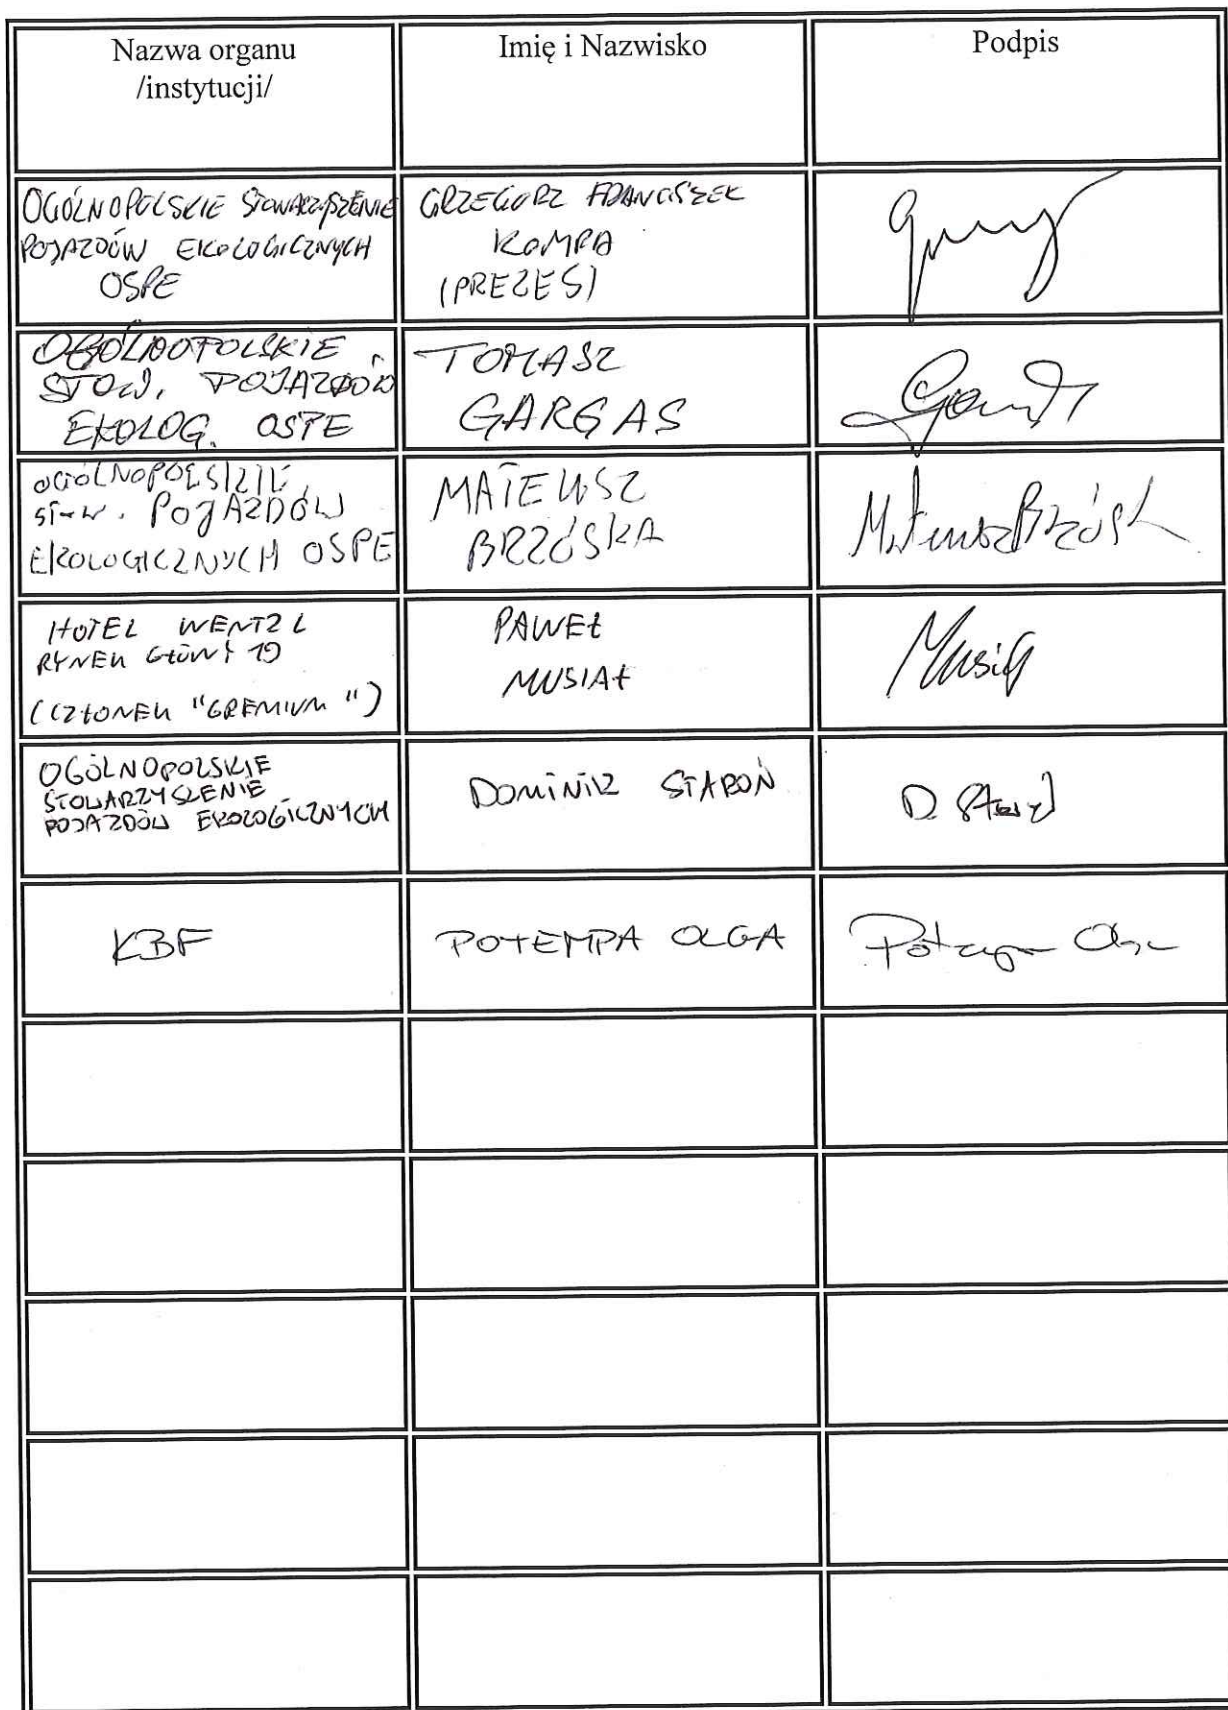 Nazwa organu
/instytucji/
Imię i Nazwisko
Podpis
OGÓLNOPOLSKIE STOWARZYSZENIE
POJAZDÓW EKOLOGICZNYCH
OSPE
GRZEGORZ FRANCISZEK
KOMPA
(PREZES)
OGÓLNOPOLSKIE
STOW. POJAZDÓW
EKOLOG. OSPE
TOMASZ
GARGAS
OGÓLNOPOLSKIE
STOW. POJAZDÓW
EKOLOGICZNYCH OSPE
MATEUSZ
BRZÓSKA
Mateusz Brzósk
HOTEL WENTZL
RYNEK GŁÓWNY 19
(CZŁONEK "GREMIUM")
PAWEŁ
MUSIAŁ
Musiał
OGÓLNOPOLSKIE
STOWARZYSZENIE
POJAZDÓW EKOLOGICZNYCH
DOMINIK STAROŃ
D.
KBF
POTEMPA OLGA
Potempa Olga